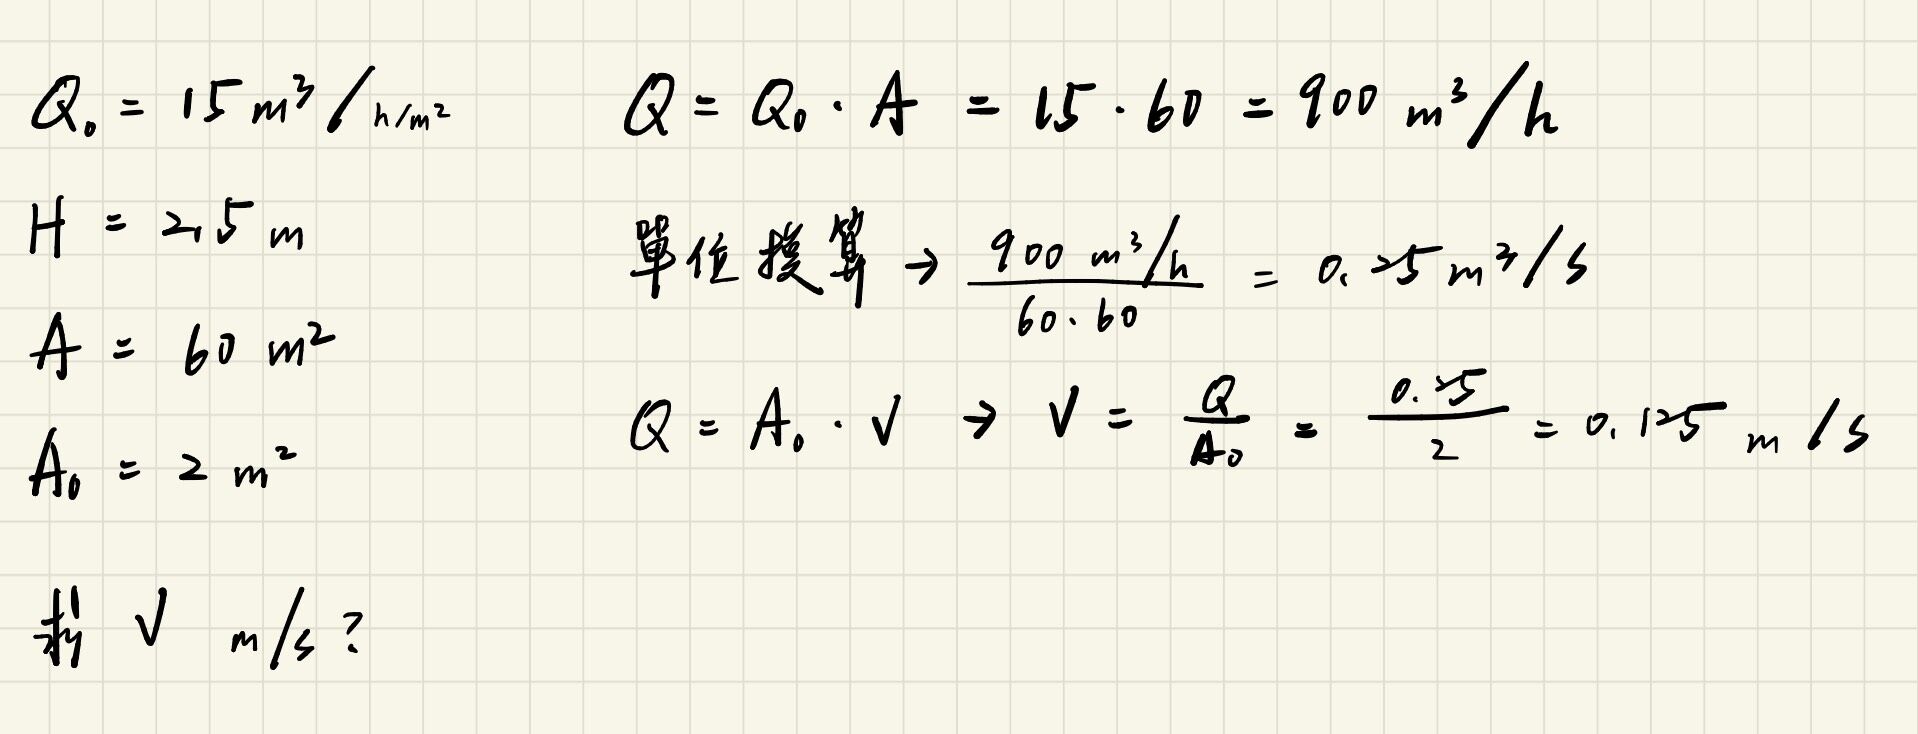 Q₀ = 15 m³/h/m²
H = 2.5 m
A = 60 m²
A₀ = 2 m²
求 V m/s?
Q = Q₀ · A = 15 · 60 = 900 m³/h
單位換算 → 900 m³/h / 60·60 = 0.25 m³/s
Q = A₀ · V → V = Q / A₀ = 0.25 / 2 = 0.125 m/s